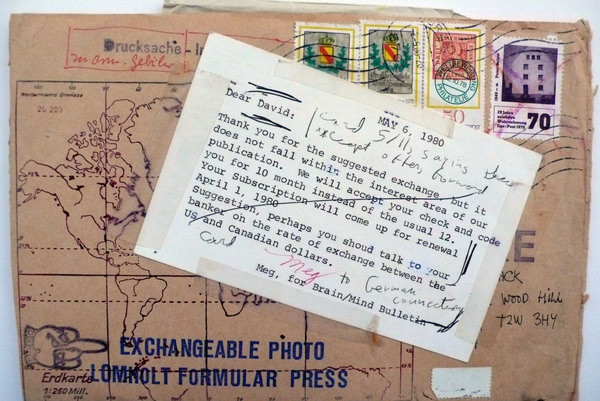 Drucksache -
50
70
MAY 6, 1980
Dear David:
card 5/11, saying
Thank you for the suggested exchange, but it
does not fall within the interest area of our
publication. We will accept your check and code
you for 10 month instead of the usual 12.
Your Subscription will come up for renewal
April 1, 1980
Suggestion, perhaps you shoud talk to your
banker on the rate of exchange between the
US and Canadian dollars.
Card
Meg to German
connection
Meg, for Brain/Mind Bulletin
WOOD Hill
T2W 3H4
EXCHANGEABLE PHOTO
LOMHOLT FORMULAR PRESS
Erdkarte
1:260 Mill.